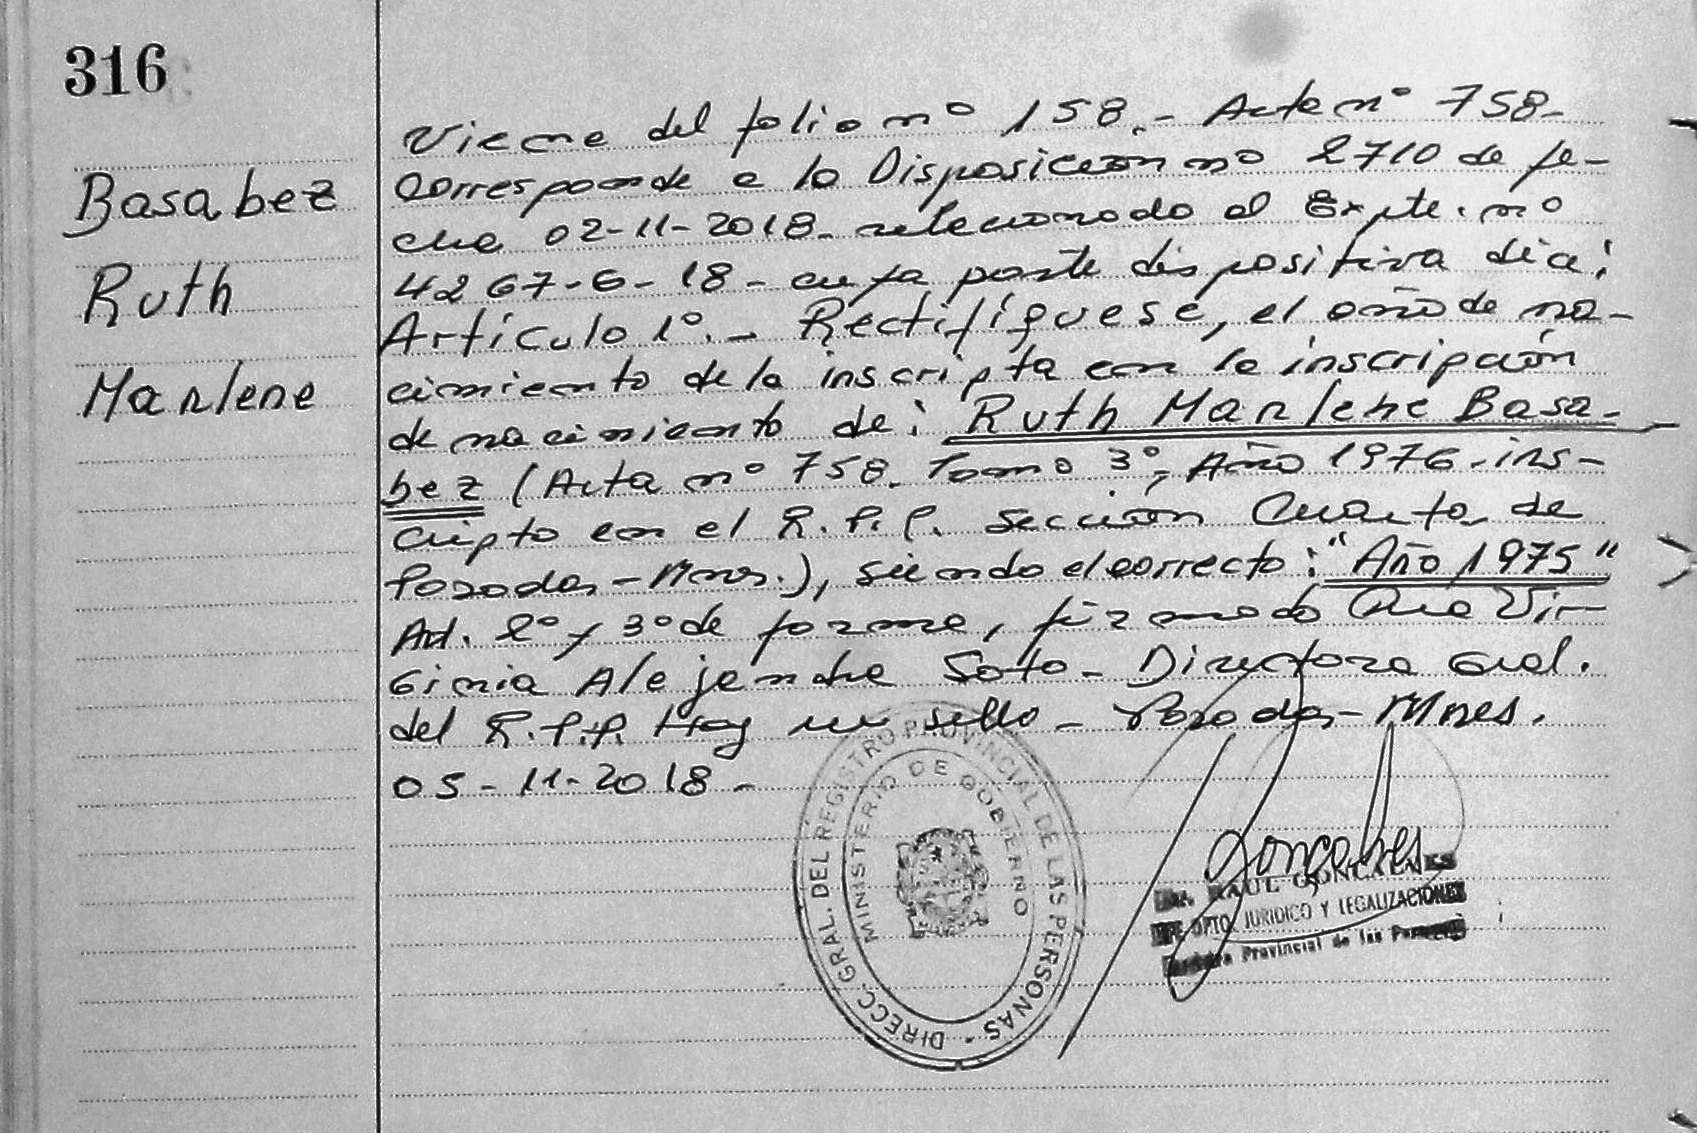 316
Basabez
Ruth
Marlene
Viene del folio nº 158.- Acta nº 758-
Corresponde a la Disposición nº 2710 de fe-
cha 02-11-2018- relacionado al Expte. nº
4267-6-18- cuya parte dispositiva dice:
Artículo 1º.- Rectifíquese, el año de na-
cimiento de la inscripta en la inscripción
de nacimiento de: Ruth Marlene Basa-
bez (Acta nº 758. Tomo 3º, Año 1976-ins-
cripto en el R.P.P. Sección Cuarta, de
Posadas-Mnes.), siendo el correcto: "Año 1975"
Art. 2º y 3º de forma, firmado Ana Vir-
ginia Alejandra Soto- Directora Gral.
del R.P.P. Hay un sello- Posadas-Mnes.
05-11-2018-
DIRECC. GRAL. DEL REGISTRO PROVINCIAL DE LAS PERSONAS
MINISTERIO DE GOBIERNO
Gonçalves
RAUL GONCALVES
DPTO. JURIDICO Y LEGALIZACIONES
Provincial de las Personas